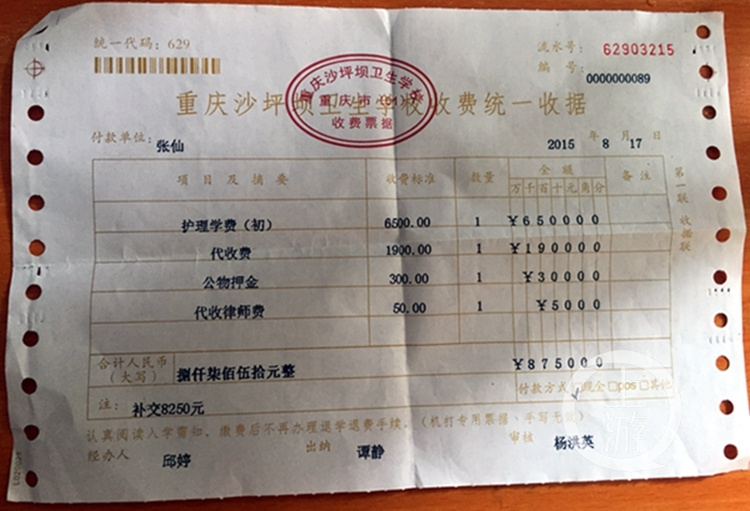 统一代码：629
流水号：62903215
编号：0000000089
重庆沙坪坝卫生学校收费统一收据
重庆沙坪坝卫生学校
重庆市
收费票据
付款单位：张仙
2015 年 8 月 17 日
项目及摘要 收费标准 数量 金额 备注
万千百十元角分
护理学费（初） 6500.00 1 ￥650000
代收费 1900.00 1 ￥190000
公物押金 300.00 1 ￥30000
代收律师费 50.00 1 ￥5000
合计人民币（大写） 捌仟柒佰伍拾元整 ￥875000
付款方式 现金 □pos □其他
注：补交8250元
认真阅读入学需知，缴费后不再办理退学退费手续。（机打专用票据，手写无效）
经办人 邱婷 出纳 谭静 审核 杨洪英
第一联 收据联